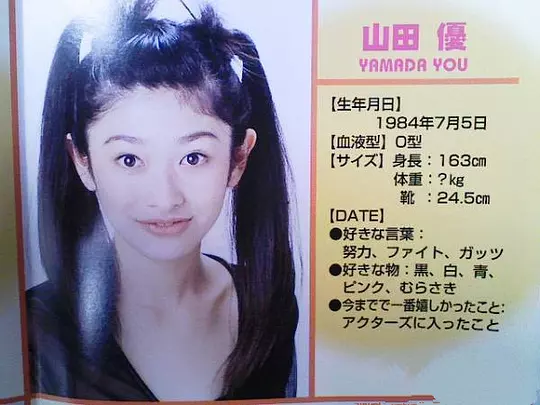 山田 優
YAMADA YOU
【生年月日】
1984年7月5日
【血液型】O型
【サイズ】身長：163cm
体重：?kg
靴：24.5cm
【DATE】
●好きな言葉：
努力、ファイト、ガッツ
●好きな物：黒、白、青、
ピンク、むらさき
●今までで一番嬉しかったこと:
アクターズに入ったこと